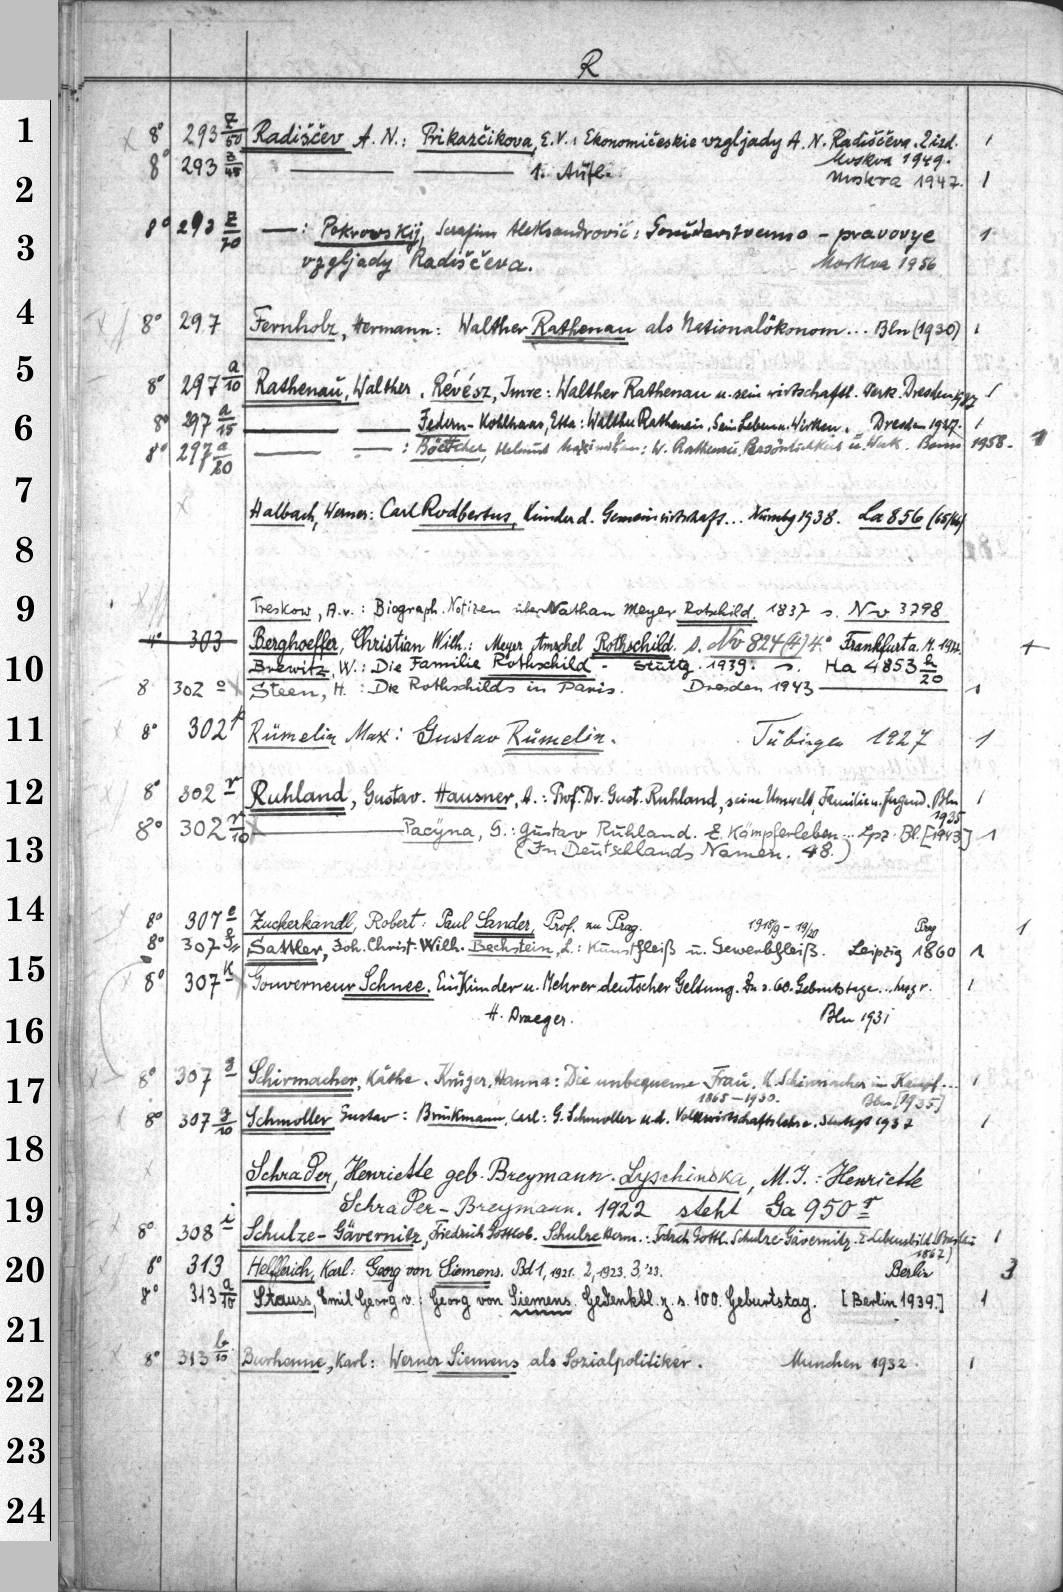 R
1 8° 293 Z/50 Radiščev A. N.: Prikazčikova, E. V.: Ekonomičeskie vzgljady A. N. Radiščeva. 2 izd. 1
Moskva 1949.
8° 293 3/48 — — 1. Aufl. Moskva 1947. 1
2
8° 293 Z/70 — : Pokrovskij, Serafim Aleksandrovič: Gosudarstvenno - pravovye 1
3 vzgljady Radiščeva. Moskva 1956
4 8° 297 Fernholz, Hermann: Walther Rathenau als Nationalökonom... Bln (1930) 1
5 8° 297 a/10 Rathenau, Walther. Révész, Imre: Walther Rathenau u. sein wirtschaftl. Werk. Dresden 1927 1
6 8° 297 a/15 — — Federn-Kohlhaas, Etta: Walther Rathenau, Sein Leben u. Wirken. Dresden 1927. 1
8° 297 a/20 — — : Böttcher, Helmut Maximilian: W. Rathenau, Persönlichkeit u. Werk. Bonn 1958. 1
7 Halbach, Werner: Carl Rodbertus, Künder d. Gemeinwirtschaft... Nürnbg 1938. La 856 (65/66)
8
9 Treskow, A. v.: Biograph. Notizen über Nathan Meyer Rotschild. 1837 s. Nv 3798
4° 303 Berghoeffer, Christian Wilh.: Meyer Amschel Rothschild. s. Nv 824(4) 4° Frankfurt a. M. 1924.
10 Brewitz, W.: Die Familie Rothschild - Stuttg. 1939. s. Ha 4853 h/20
8 302 o Steen, H.: Die Rothschilds in Paris. Dresden 1943 — 1
11 8° 302 p Rümelin Max: Gustav Rümelin. Tübingen 1927 1
12 8° 302 r Ruhland, Gustav. Hausner, A.: Prof. Dr. Gust. Ruhland, seine Umwelt, Familie u. Jugend. Bln 1
1935
8° 302 r/10 — Pacyna, G.: Gustav Ruhland. E. Kämpferleben... Lpz. Bl. [1943] 1
13 (In Deutschlands Namen. 48.)
14 8° 307 e Zuckerkandl, Robert: Paul Sander, Prof. zu Prag. 1918/19 - 19/20 Prag 1
8° 307 Sattler, Joh. Christ. Wilh. Bechstein, L.: Kunstfleiß u. Gewerbfleiß. Leipzig 1860 1
15 8° 307 k Gouverneur Schnee. Ein Künder u. Mehrer deutscher Geltung. Zu s. 60. Geburtstage... hrsg v. 1
16 H. Draeger. Bln 1931
17 8° 307 g Schirmacher, Käthe. Krüger, Hanna: Die unbequeme Frau. K. Schirmacher im Kampf... 1
1865-1930. Bln [1935]
8° 307 g/10 Schmoller Gustav: Brinkmann, Carl: G. Schmoller u. d. Volkswirtschaftslehre. Stuttgt 1937 1
18 Schrader, Henriette geb. Breymann. Lyschinska, M. J.: Henriette
19 Schrader-Breymann. 1922 steht Ga 950 r
8° 308 i Schulze-Gävernitz, Friedrich Gottlob. Schulze Herm.: Fdrch Gottl. Schulze-Gävernitz. E Lebensbild (Breslau 1
1867)
20 8° 313 Helfferich, Karl: Georg von Siemens. Bd 1, 1921. 2, 1923. 3, '23. Berlin 3
8° 313 a/10 Strauss, Emil Georg v.: Georg von Siemens. Gedenkbl. z. s. 100. Geburtstag. [Berlin 1939.] 1
21 8° 313 b/10 Burhenne, Karl: Werner Siemens als Sozialpolitiker. München 1932. 1
22
23
24